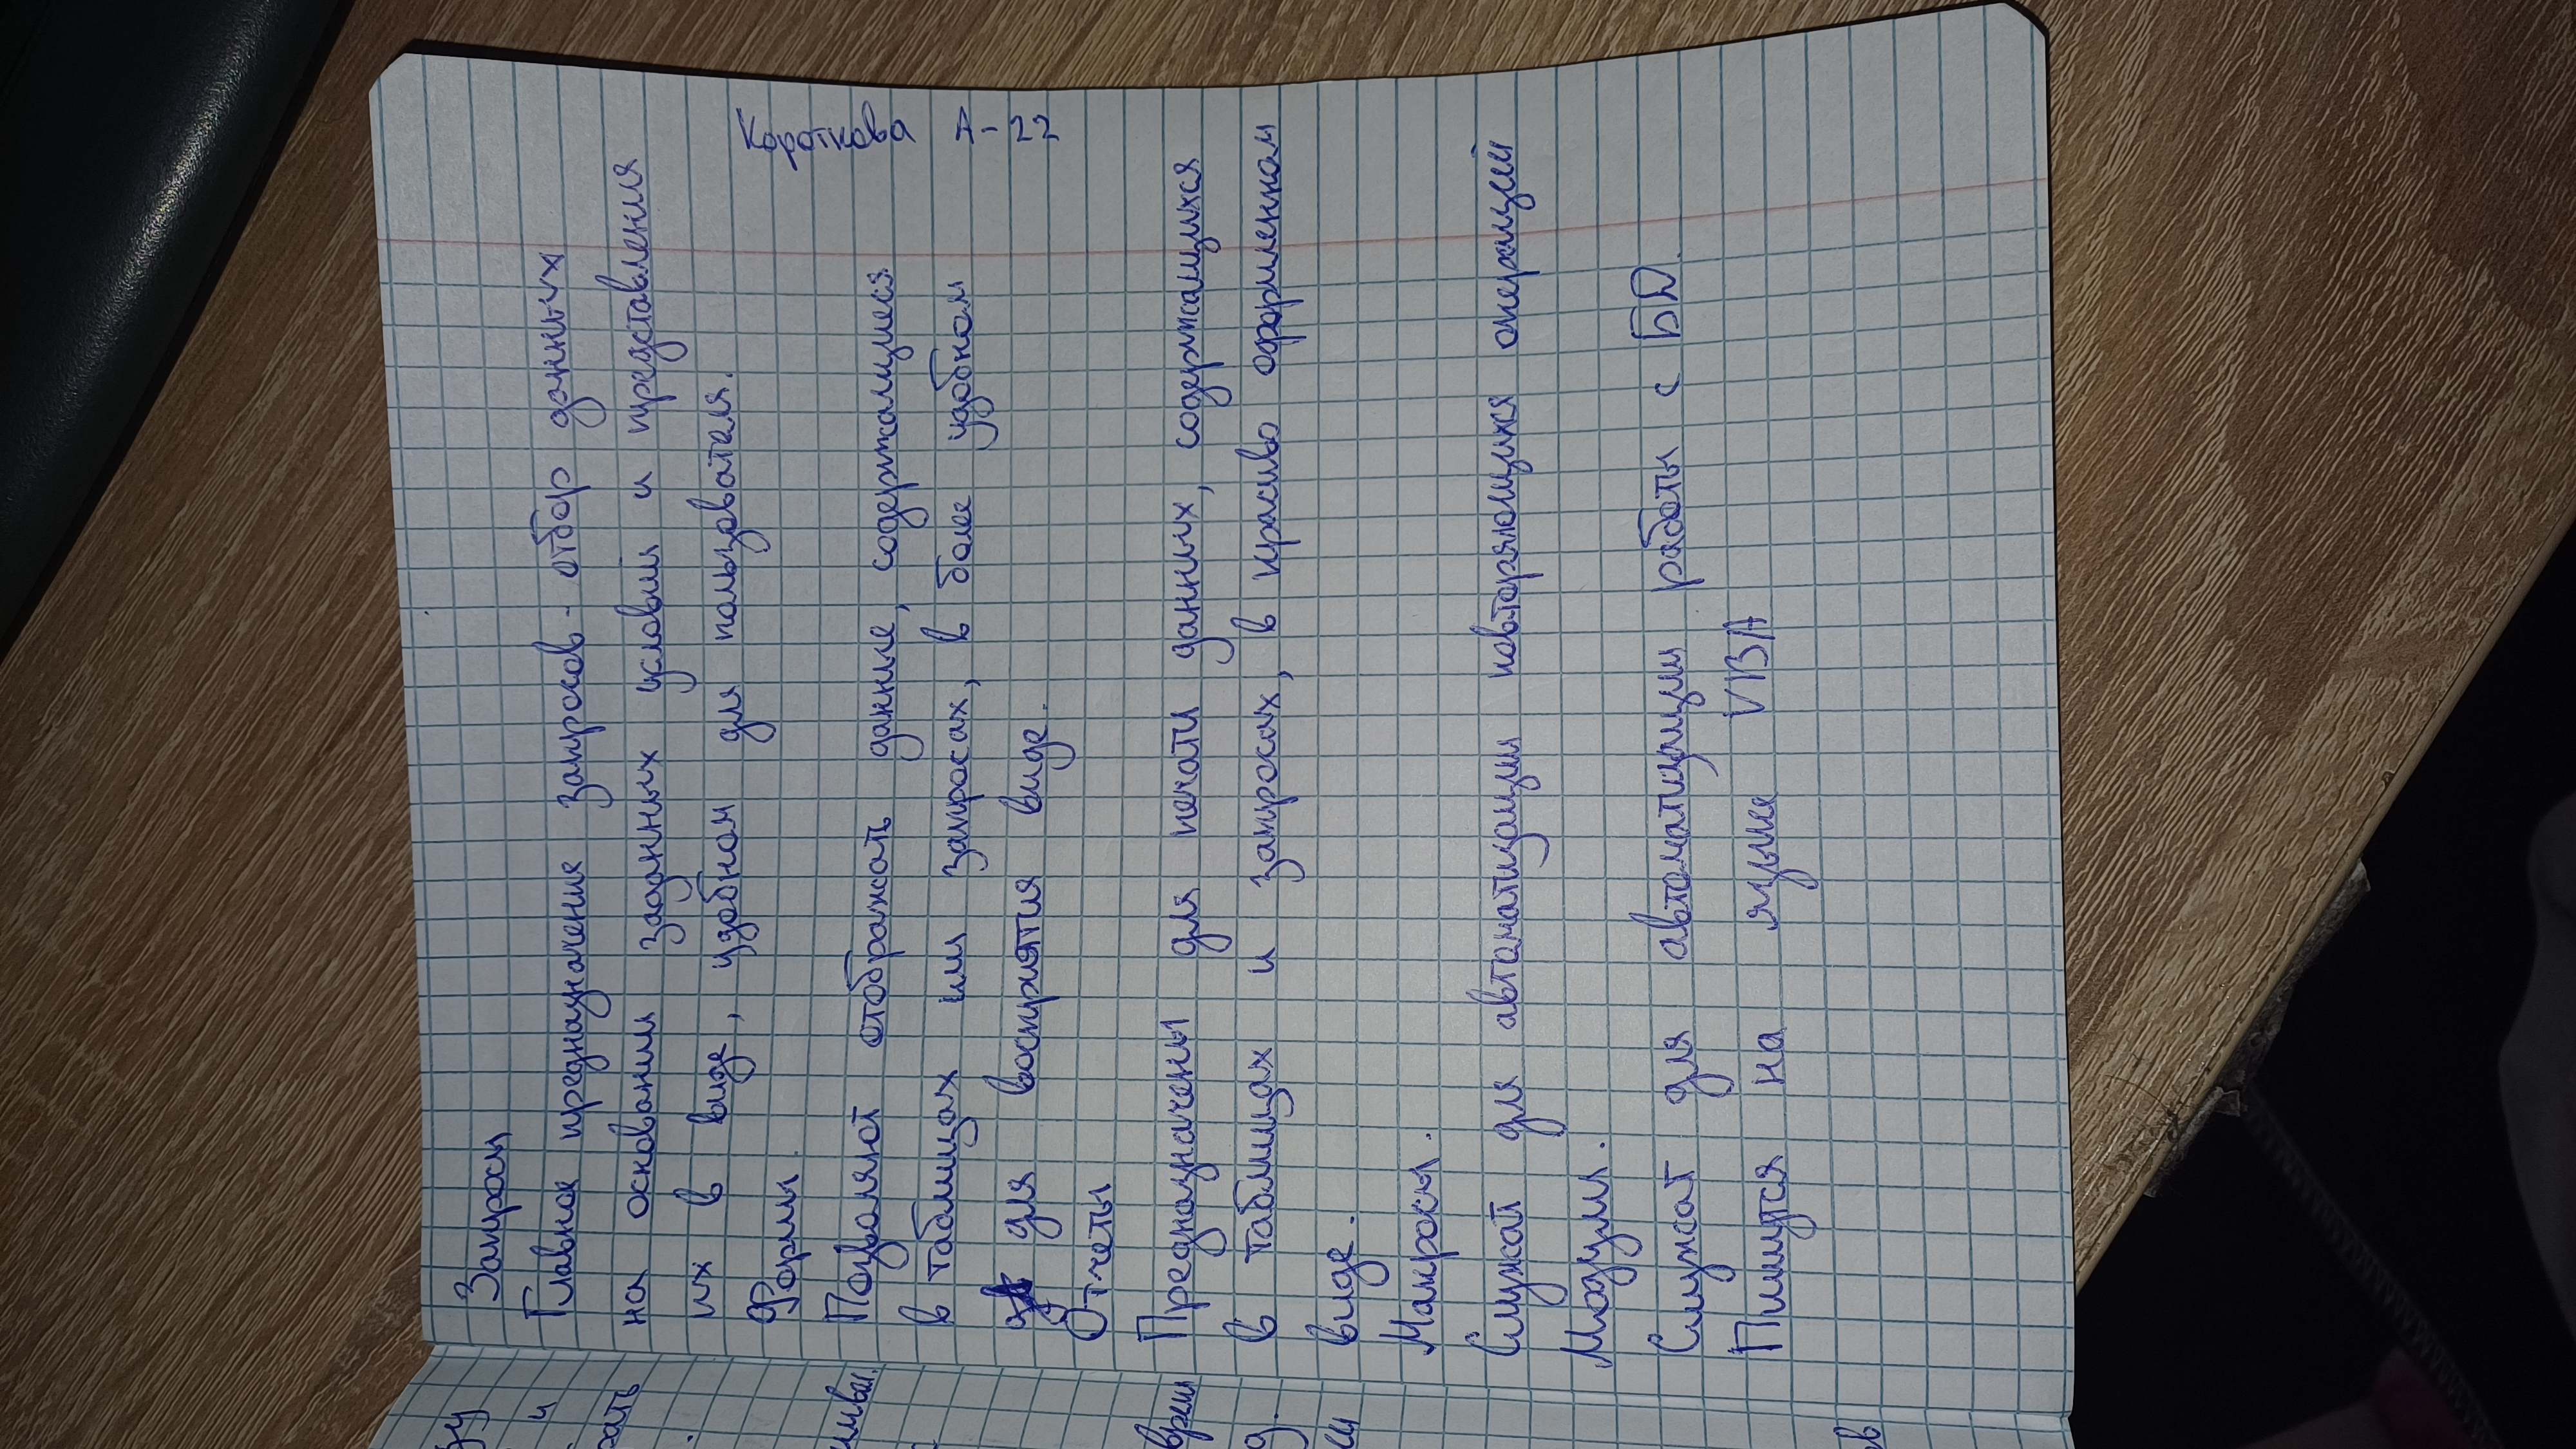 Короткова А-22
Запросы
Главное предназначение запросов - отбор данных
на основании заданных условий и представления
их в виде, удобном для пользователя.
Формы.
Позволяют отображать данные, содержащиеся
в таблицах или запросах, в более удобном
для восприятия виде.
Отчеты
Предназначены для печати данных, содержащихся
в таблицах и запросах, в красиво оформленном
виде.
Макросы.
Служат для автоматизации повторяющихся операций
Модули.
Служат для автоматизации работы с БД.
Пишутся на языке VBA